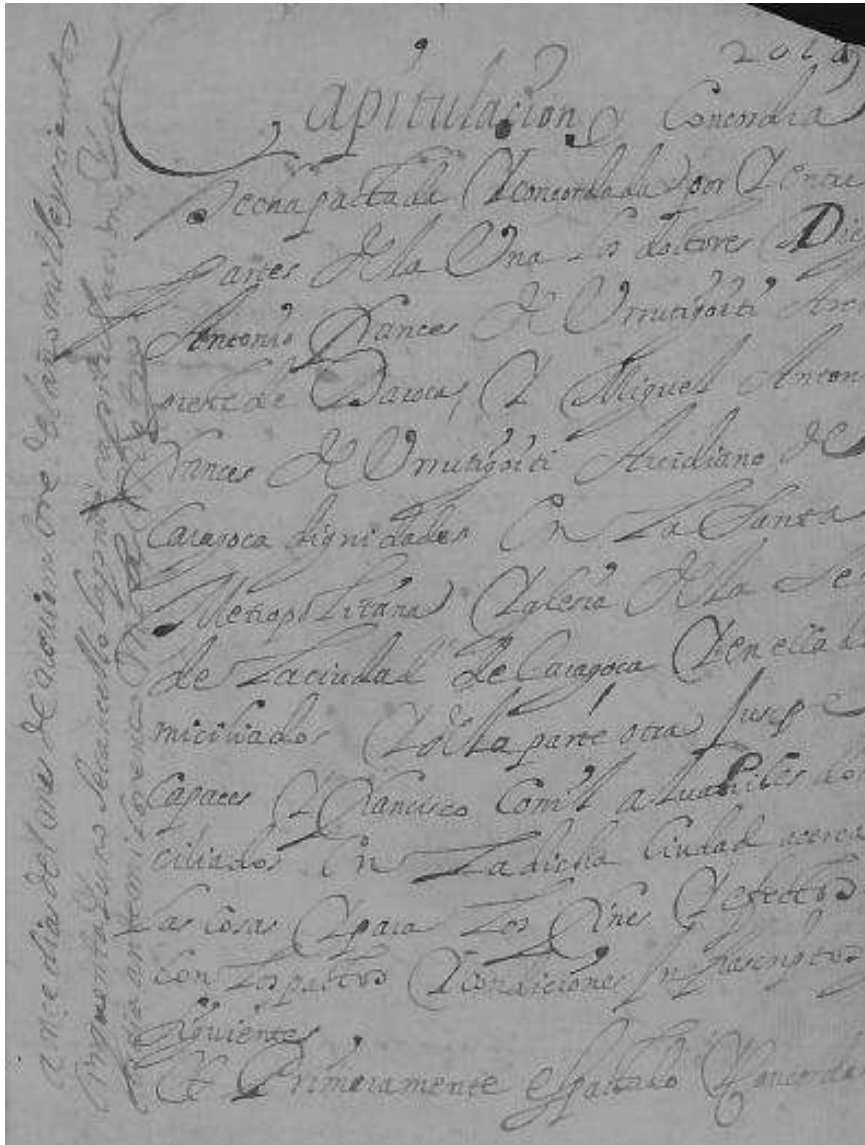 Capitulacion y Concordia
hecha pactada y concordada por y entre
partes de la Una los doctores Die
Antonio Frances de Urrutigoiti Arci
preste de Daroca, y Miguel Anton
Frances de Urrutigoiti Arcidiano de
Caragoca dignidades En La Santa
Metropolitana Yglesia de la Se
de La ciudad de Caragoca y en ella do
miciliados y de la parte otra Jusep
Capaces y Francisco
ciliados En La dicha Ciudad acerca
Las Cosas y para Los fines y efectos
con Los pactos y condiciones Infrascriptos
siguientes
Et Primeramente es pactado y concorda
a once dias del mes de noviembre del año mil seyscientos
cinquenta y uno se cancello